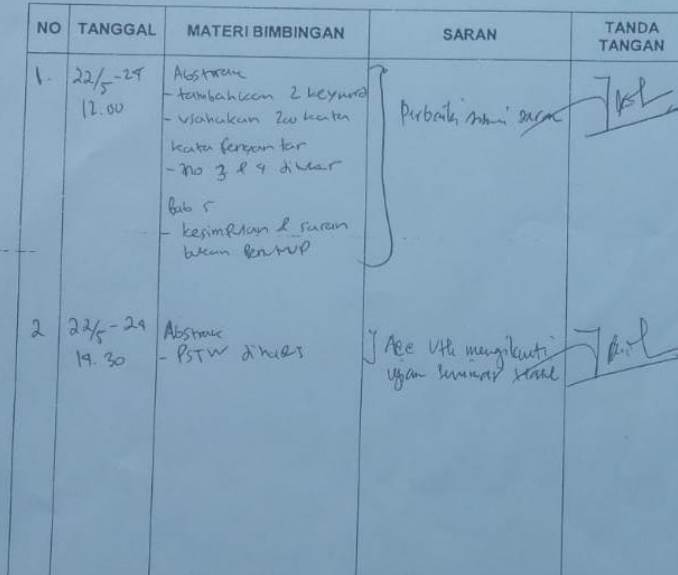 NO TANGGAL MATERI BIMBINGAN SARAN TANDA TANGAN
1. 22/5-24 12.00
Abstrak
- tambahkan 2 keyword
- usahakan 200 kata
kata pengantar
- no 3 & 4 ditukar
Bab 5
- kesimpulan & saran
bukan penutup
Perbaiki sesuai saran
2 22/5-24 19.30
Abstrak
- PSTW
Acc utk mengikuti
ujian seminar